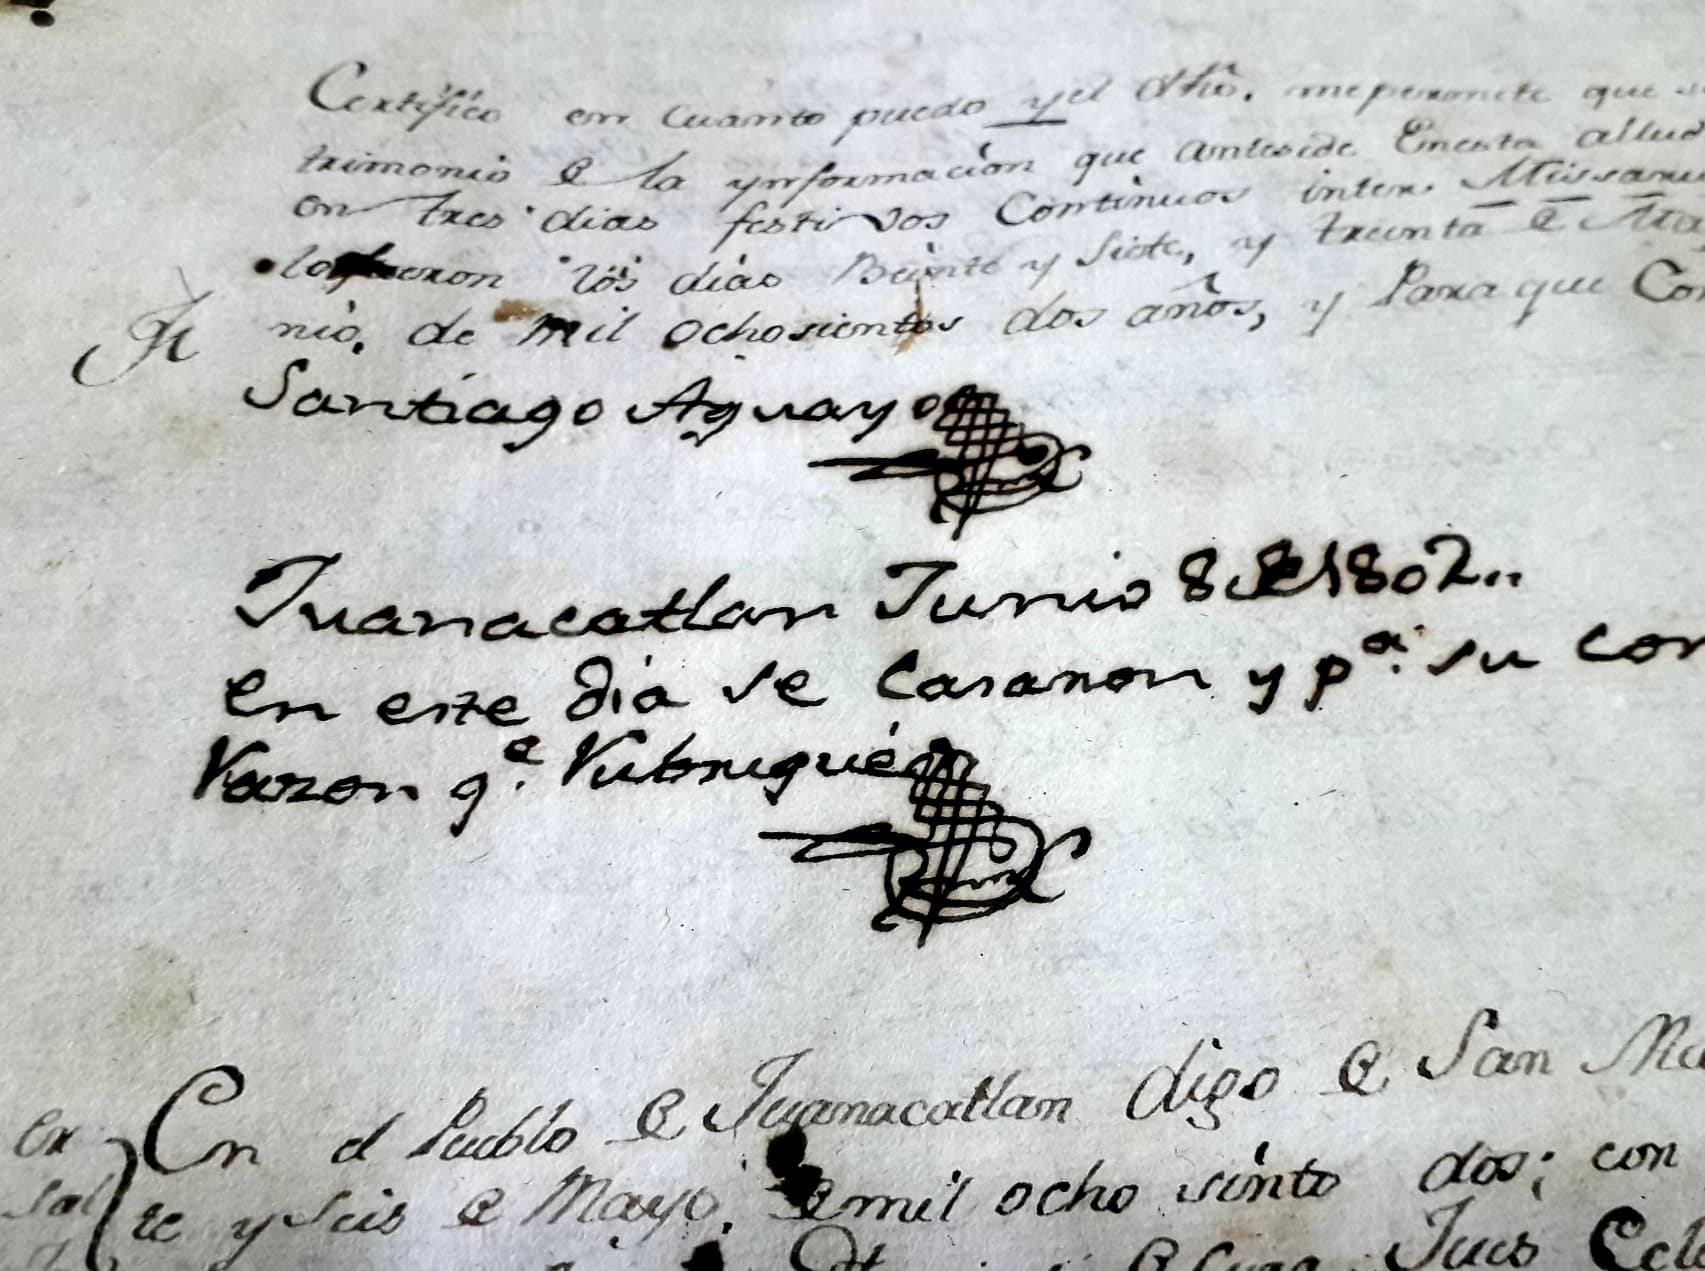 Certifico en Cuanto puedo y el dho. mepermite que
trimonio e la ynformacion que anteside Enesta
en tres dias festivos Continuos inter Missaru
los dias Beinte y Siete, y treinta e
nio, de mil ochosientos dos años, y Para que Con
Santiago Aguayo
Juanacatlan Junio 8 de 1802..
en este dia se Casaron y pª. su con
Razon qe. Rubriqué
En el Pueblo e Juanacatlan digo e San Ma
te y seis e Mayo. e mil ocho sinto dos; con